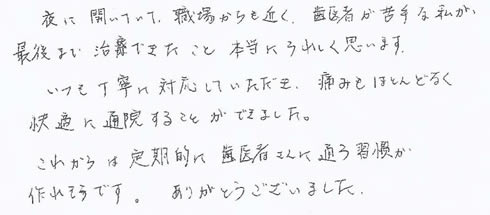 夜に開いていて、職場からも近く、歯医者が苦手な私が、
最後まで治療できたこと本当にうれしく思います。
いつも丁寧に対応していただき、痛みもほとんどなく
快適に通院することができました。
これからは定期的に歯医者さんに通う習慣が
作れそうです。ありがとうございました。